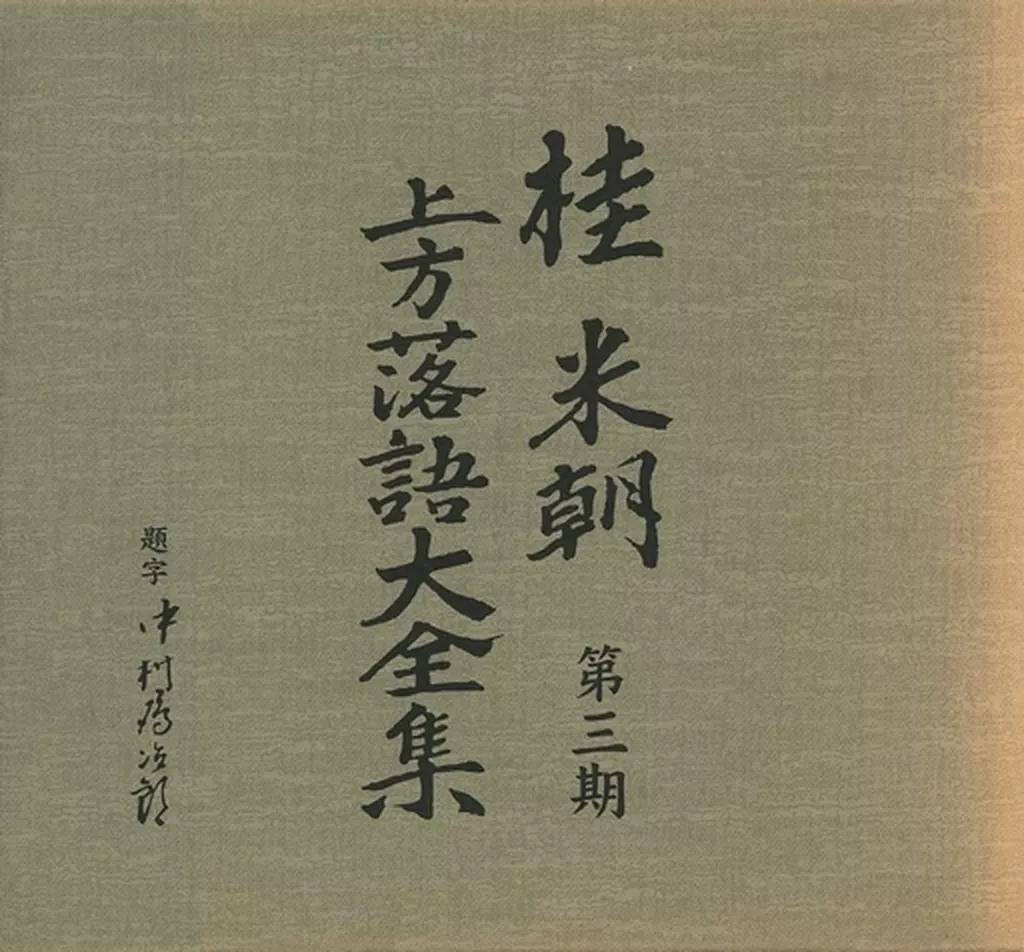 桂米朝 第三期
上方落語大全集
題字 中村鴈治郎